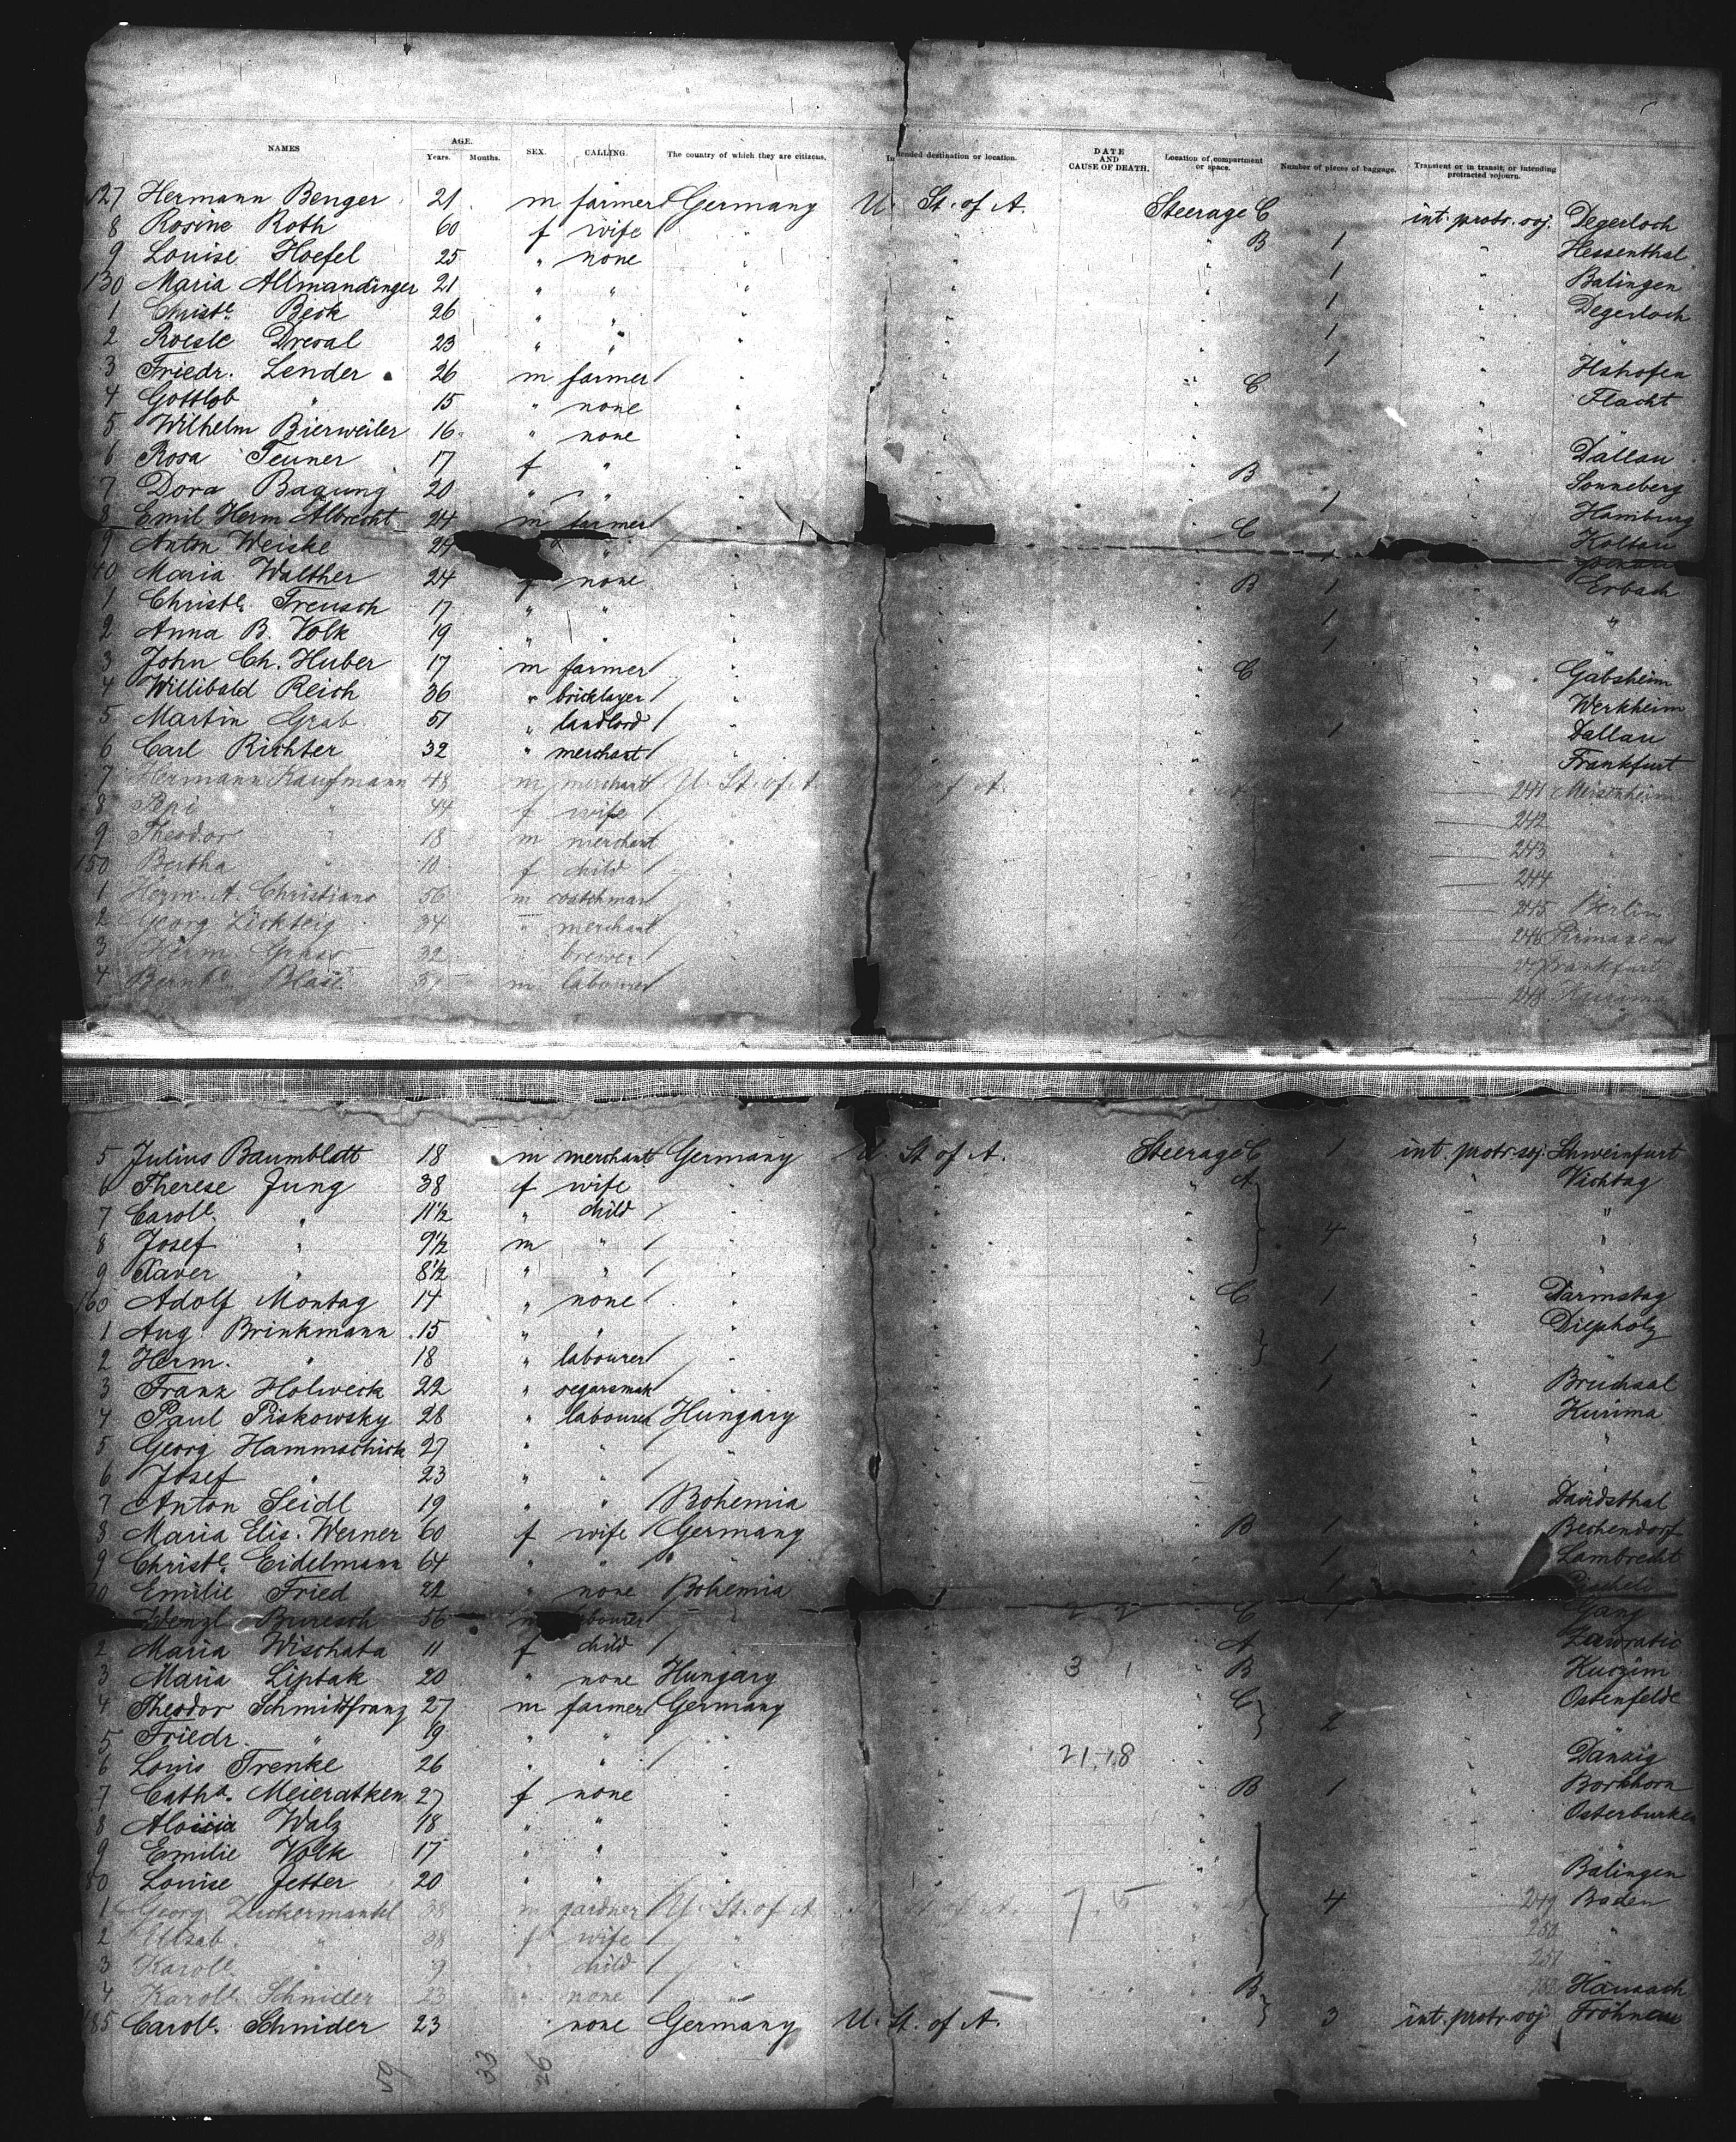 NAMES AGE. Years. Months. SEX. CALLING. The country of which they are citizens. Intended destination or location. DATE AND CAUSE OF DEATH. Location of compartment or space. Number of pieces of baggage. Transient or in transit, or intending protracted sojourn.
127 Hermann Benger 21 m farmer Germany U. St. of A. Steerage C int. protr. soj. Degerloch
8 Rosine Roth 60 f wife " " B 1 " Hessenthal
9 Louise Hoefel 25 " none " " " 1 " Balingen
130 Maria Allmandinger 21 " " " " " 1 " Degerloch
1 Christe. Beck 26 " " " " " 1 " "
2 Roesle Dreval 23 " " " " " 1 "
3 Friedr. Lender 26 m farmer " " C " Hshofen
4 Gottlob " 15 " none " " " " Flacht
5 Wilhelm Bierweiler 16 " none " " " "
6 Rosa Teuner 17 f " " " B " Dallau
7 Dora Bagung 20 " " " " " 1 " Sonneberg
8 Emil Herm Albrecht 24 m farmer " " C " Hamburg
9 Anton Weiske 24 " " " " 1 " Koltau
40 Maria Walther 24 f none " " B 1 " Erbach
1 Christe. Treusch 17 " " " " " 1 " "
2 Anna B. Volk 19 " " " " " 1 "
3 John Ch. Huber 17 m farmer " " C " Gabsheim
4 Willibald Reich 36 " bricklayer " " " " Werkheim
5 Martin Grab 51 " landlord " " " 1 " Dallau
6 Carl Richter 32 " merchant " " " " Frankfurt
7 Hermann Kaufmann 48 m merchant U. St. of A. of A. A 241 Meisenheim
8 Pepi " 44 f wife " 242
9 Theodor " 18 m merchant " 243 "
150 Bertha " 10 f child " 244
1 Herm. A. Christians 56 m watchman " 245 Berlin
2 Georg Lickteig 34 " merchant " 246 Pirmasens
3 Herm. Grass 32 " brewer " Frankfurt
4 Bernhd. Blase m labourer " 248
5 Julius Baumblatt 18 m merchant Germany U. St of A. Steerage C 1 int. protr. soj. Schweinfurt
6 Therese Jung 38 f wife " " A " Vichtag
7 Carole. " 11½ " child " " " " "
8 Josef " 9½ m " " " " 4 " "
9 Xaver " 8½ " " " " " " "
160 Adolf Montag 14 " none " " C 1 " Darmstag
1 Aug. Brinkmann 15 " " " " " " Diepholz
2 Herm. " 18 " labourer " " " 1 "
3 Franz Holweck 22 " segarsmak " " " 1 " Bruchsal
4 Paul Piskowsky 28 " labourer Hungary " " " Kurima
5 Georg Hammschick 27 " " " " " " "
6 Josef " 23 " " " " " " "
7 Anton Seidl 19 " " Bohemia " " " Davidsthal
8 Maria Elis. Werner 60 f wife Germany " B 1 " Bechendorf
9 Christe. Eidelmann 64 " " " " " 1 " Lambrecht
70 Emilie Fried 22 " none Bohemia " " 1 "
Wenzl Buresch 56 m labourer " " C 1 "
2 Maria Wischata 11 f child " " A " Lawratic
3 Maria Liptak 20 " none Hungary " 3 1 B " Kurzim
4 Theodor Schmidtfranz 27 m farmer Germany " C 2 " Ostenfelde
5 Friedr. " 19 " " " " "
6 Louis Trenke 26 " " " " 21+8 " " Danzig
7 Cathe. Meieratken 27 f none " " B 1 " Borkhorn
8 Aloisia Walz 18 " " " " " " Osterburken
9 Emilie Volk 17 " " " " " "
80 Louise Jetter 20 " " " " " " Balingen
1 Georg Zuckermantel 38 m gardner U. St. of A of A. 7. 5 " 4 249 Baden
2 Elisab. " 38 f wife " 250 "
3 Karole. " 9 " child " 251 "
4 Karole. Schnider 23 " none " B Hausach
185 Carole. Schnider 23 none Germany U. St. of A. " 3 int. protr. soj Fröhnen
59 33 26